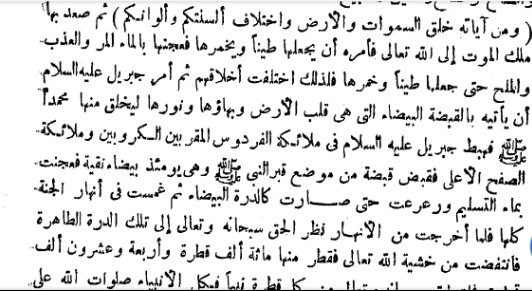 ( ومن آياته خلق السموات والأرض واختلاف ألسنتكم وألوانكم ) ثم صعد بها
ملك الموت إلى الله تعالى فأمره أن يجعلها طيناً ويخمرها فعجنتها بالماء المر والعذب
والملح حتى جعلها طيناً وخمرها فلذلك اختلفت أخلاقهم ثم أمر جبريل عليه السلام
أن يأتيه بالقبضة البيضاء التى هى قلب الأرض وبهاؤها ونورها ليخلق منها محمداً
ﷺ فهبط جبريل عليه السلام فى ملائكة الفردوس المقربين الكروبين وملائكة
الصفح الاعلى فقبض قبضة من موضع قبر النبى ﷺ وهى يومئذ بيضاء نقية فعجنت
بماء التسليم ورعرعت حتى صارت كالدرة البيضاء ثم غمست فى أنهار الجنة
كلها فلما أخرجت من الانهار نظر الحق سبحانه وتعالى إلى تلك الدرة الطاهرة
فانتفضت من خشية الله تعالى فقطر منها مائة ألف قطرة وأربعة وعشرون ألف
كل قطرة نبياً فكل الانبياء صلوات الله على